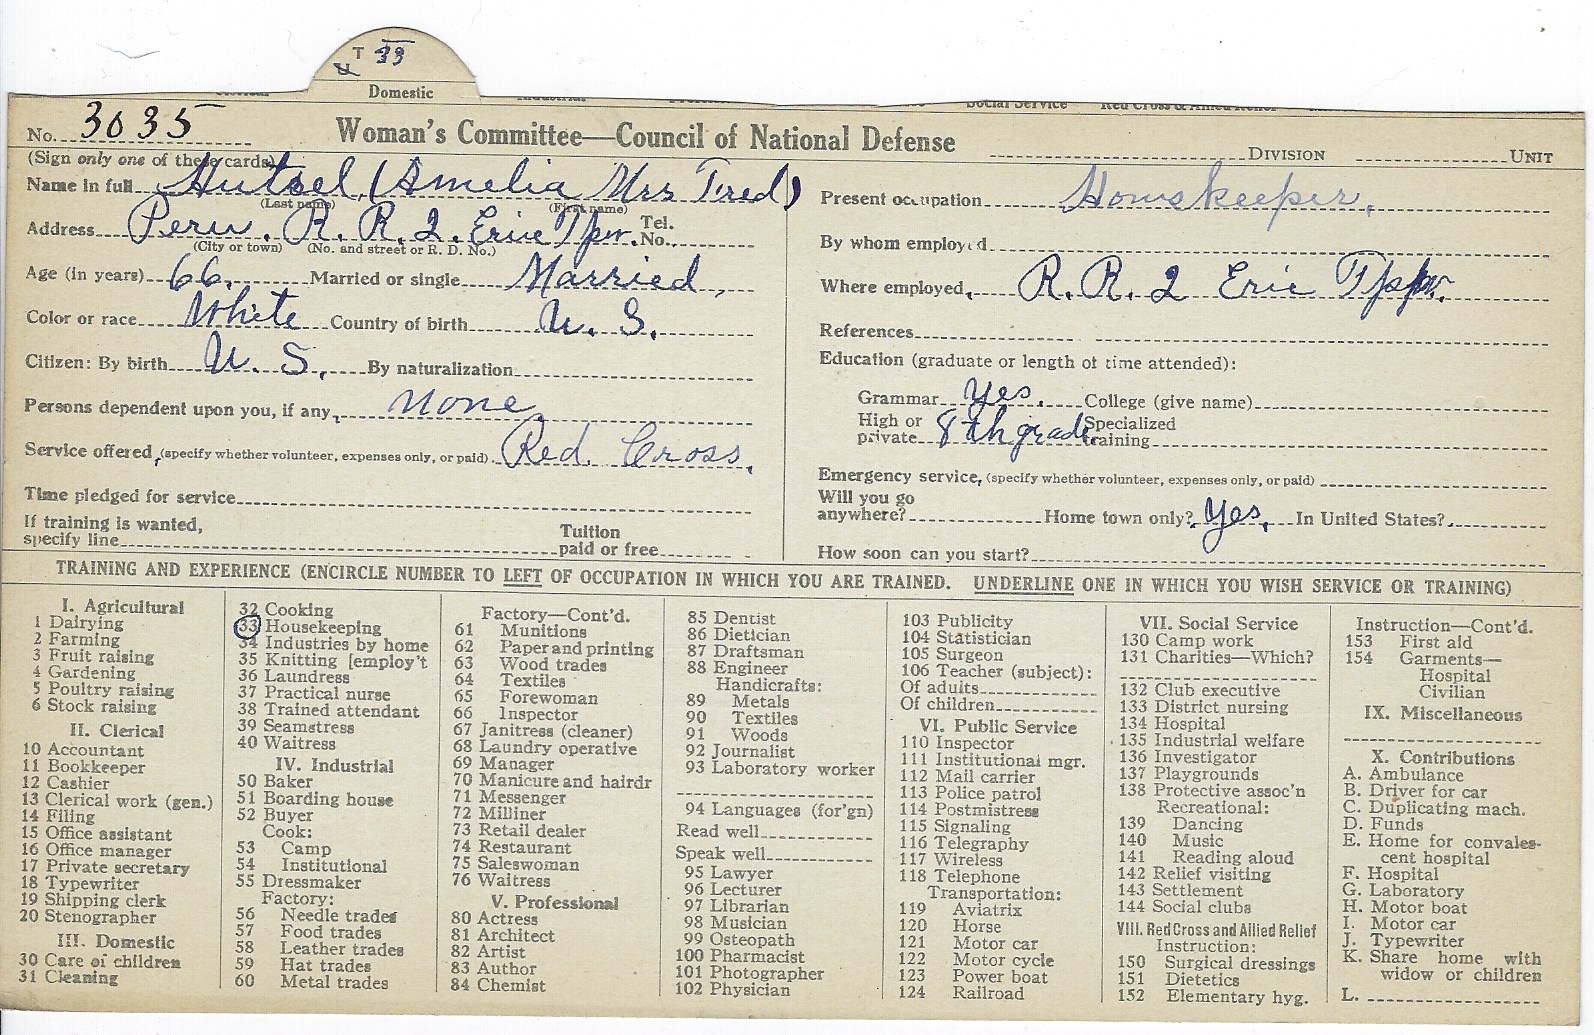 T 33
U
Domestic
Social Service Red Cross & Allied Relief
No. 3035 Woman's Committee—Council of National Defense DIVISION UNIT
(Sign only one of these cards)
Name in full Hutsel (Amelia Mrs Fred)
(Last name) (First name)
Address Peru. R. R. 2. Erie Tpw. Tel. No.
(City or town) (No. and street or R. D. No.)
Age (in years) 66. Married or single Married,
Color or race White Country of birth U. S.
Citizen: By birth U. S. By naturalization
Persons dependent upon you, if any, None.
Service offered, (specify whether volunteer, expenses only, or paid). Red Cross.
Time pledged for service
If training is wanted,
specify line Tuition paid or free
Present occupation Howskeeper.
By whom employed
Where employed, R. R. 2 Erie Tpw.
References
Education (graduate or length of time attended):
Grammar Yes. College (give name)
High or private 8th grade Specialized training
Emergency service, (specify whether volunteer, expenses only, or paid)
Will you go
anywhere? Home town only? Yes, In United States?
How soon can you start?
TRAINING AND EXPERIENCE (ENCIRCLE NUMBER TO LEFT OF OCCUPATION IN WHICH YOU ARE TRAINED. UNDERLINE ONE IN WHICH YOU WISH SERVICE OR TRAINING)
I. Agricultural
1 Dairying
2 Farming
3 Fruit raising
4 Gardening
5 Poultry raising
6 Stock raising
II. Clerical
10 Accountant
11 Bookkeeper
12 Cashier
13 Clerical work (gen.)
14 Filing
15 Office assistant
16 Office manager
17 Private secretary
18 Typewriter
19 Shipping clerk
20 Stenographer
III. Domestic
30 Care of children
31 Cleaning
32 Cooking
33 Housekeeping
34 Industries by home
35 Knitting [employ't
36 Laundress
37 Practical nurse
38 Trained attendant
39 Seamstress
40 Waitress
IV. Industrial
50 Baker
51 Boarding house
52 Buyer
Cook:
53 Camp
54 Institutional
55 Dressmaker
Factory:
56 Needle trades
57 Food trades
58 Leather trades
59 Hat trades
60 Metal trades
Factory—Cont'd.
61 Munitions
62 Paper and printing
63 Wood trades
64 Textiles
65 Forewoman
66 Inspector
67 Janitress (cleaner)
68 Laundry operative
69 Manager
70 Manicure and hairdr
71 Messenger
72 Milliner
73 Retail dealer
74 Restaurant
75 Saleswoman
76 Waitress
V. Professional
80 Actress
81 Architect
82 Artist
83 Author
84 Chemist
85 Dentist
86 Dietician
87 Draftsman
88 Engineer
Handicrafts:
89 Metals
90 Textiles
91 Woods
92 Journalist
93 Laboratory worker
94 Languages (for'gn)
Read well
Speak well
95 Lawyer
96 Lecturer
97 Librarian
98 Musician
99 Osteopath
100 Pharmacist
101 Photographer
102 Physician
103 Publicity
104 Statistician
105 Surgeon
106 Teacher (subject):
Of adults
Of children
VI. Public Service
110 Inspector
111 Institutional mgr.
112 Mail carrier
113 Police patrol
114 Postmistress
115 Signaling
116 Telegraphy
117 Wireless
118 Telephone
Transportation:
119 Aviatrix
120 Horse
121 Motor car
122 Motor cycle
123 Power boat
124 Railroad
VII. Social Service
130 Camp work
131 Charities—Which?
132 Club executive
133 District nursing
134 Hospital
135 Industrial welfare
136 Investigator
137 Playgrounds
138 Protective assoc'n
Recreational:
139 Dancing
140 Music
141 Reading aloud
142 Relief visiting
143 Settlement
144 Social clubs
VIII. Red Cross and Allied Relief
Instruction:
150 Surgical dressings
151 Dietetics
152 Elementary hyg.
Instruction—Cont'd.
153 First aid
154 Garments—
Hospital
Civilian
IX. Miscellaneous
X. Contributions
A. Ambulance
B. Driver for car
C. Duplicating mach.
D. Funds
E. Home for convales-
cent hospital
F. Hospital
G. Laboratory
H. Motor boat
I. Motor car
J. Typewriter
K. Share home with
widow or children
L.